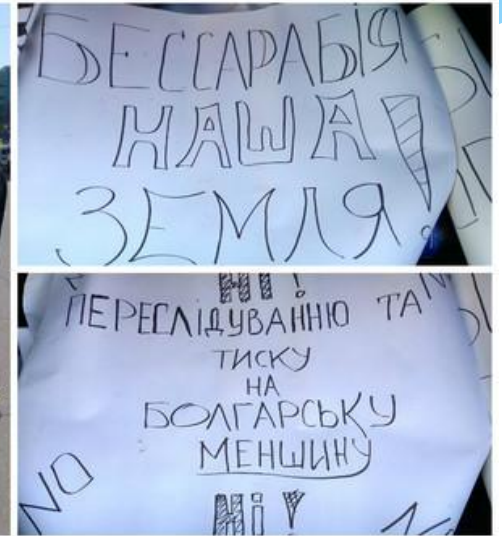 БЕССАРАБІЯ
НАША!
ЗЕМЛЯ
НІ!
ПЕРЕСЛІДУВАННЮ ТА
ТИСКУ
НА
БОЛГАРСЬКУ
МЕНШИНУ
NO
Ні!